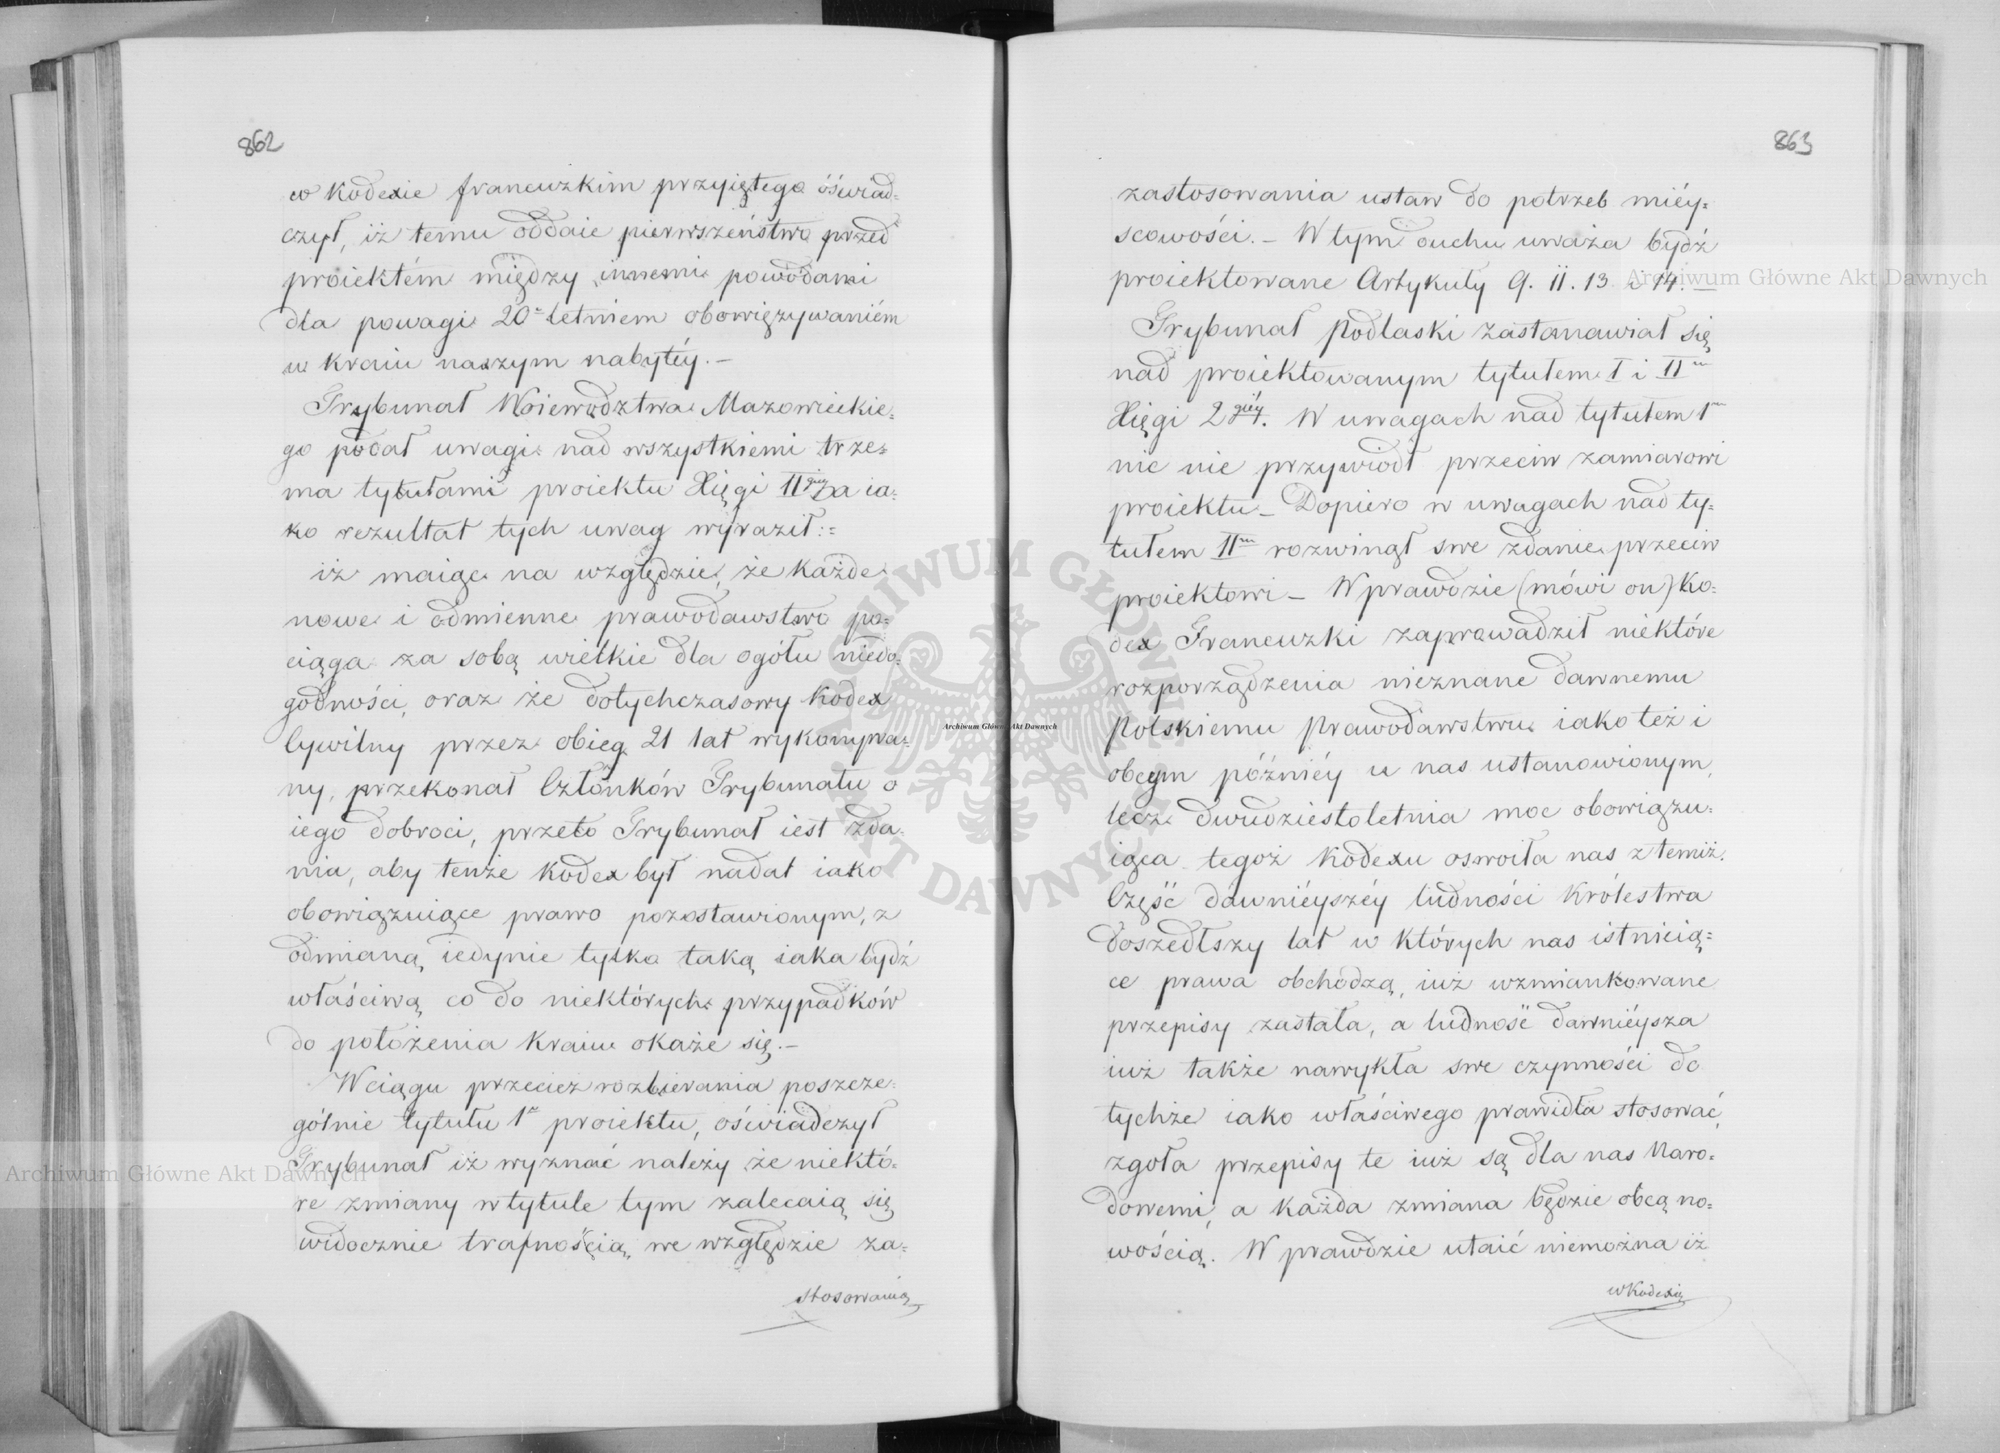 862
w Kodexie francuzkim przyiętego óświad-
czył, iż temu oddaie pierwszeństwo przed
proiektém między innemi powodami
dla powagi 20-letniem obowięzywaniém
w kraiu naszym nabytéy.—
Trybunał Woiewodztwa Mazowieckie-
go podał uwagi nad wszystkiemi trze-
ma tytułami proiektu Xięgi IIgiéy a ia-
ko rezultat tych uwag wyraził:=
iż maiąc na względzie, że każde
nowe i odmienne prawodawstwo po-
ciąga za sobą wielkie dla ogółu niedo-
godności, oraz że dotychczasowy Kodex
Cywilny przez obieg 21 lat wykonywa-
ny, przekonał Członków Trybunału o
iego dobroci, przeto Trybunał iest zda-
nia, aby tenże Kodex był nadal iako
obowięzuiące prawo pozostawionym, z
odmianą iedynie tylko taką iaka bydź
właściwą co do niektórych przypadków
do położenia kraiu okaże się.—
W ciągu przecież rozbierania poszcze-
gólnie tytułu 1o proiektu, oświadczył
Trybunał iż wyznać należy że niektó-
re zmiany w tytule tym zalecaią się
widocznie trafnością, we względzie za-
stosowania
863
zastosowania ustaw do potrzeb miéy-
scowości.— W tym duchu uważa bydź
proiektowane Artykuły 9. 11. 13 i 14.—
Trybunał Podlaski zastanawiał się
nad proiektowanym tytułem I i IIm
Xięgi 2giéy. W uwagach nad tytułem 1m
nic nie przywiódł przeciw zamiarowi
proiektu— Dopiero w uwagach nad ty-
tułem IIm rozwinął swe zdanie przeciw
proiektowi— W prawdzie (mówi on) Ko-
dex Francuzki zaprowadził niektóre
rozporządzenia nieznane dawnemu
Polskiemu Prawodawstwu iako też i
obcym późniéy u nas ustanowionym,
lecz dwudziestoletnia moc obowięzu-
iąca tegoż Kodexu oswoiła nas z temiż.
Część dawniéyszéy ludności Królestwa
doszedłszy lat w których nas istnieią-
ce prawa obchodzą, iuż wzmiankowane
przepisy zastała, a ludność dawniéysza
iuż także nawykła swe czynności do
tychże iako właściwego prawidła stosować,
zgoła przepisy te iuż są dla nas Naro-
dowemi, a każda zmiana będzie obcą no-
wością. W prawdzie utaić niemożna iż
w Kodexie
Archiwum Główne Akt Dawnych
Archiwum Główne Akt Dawnych
Archiwum Główne Akt Dawnych
ARCHIWUM GŁÓWNE
AKT DAWNYCH